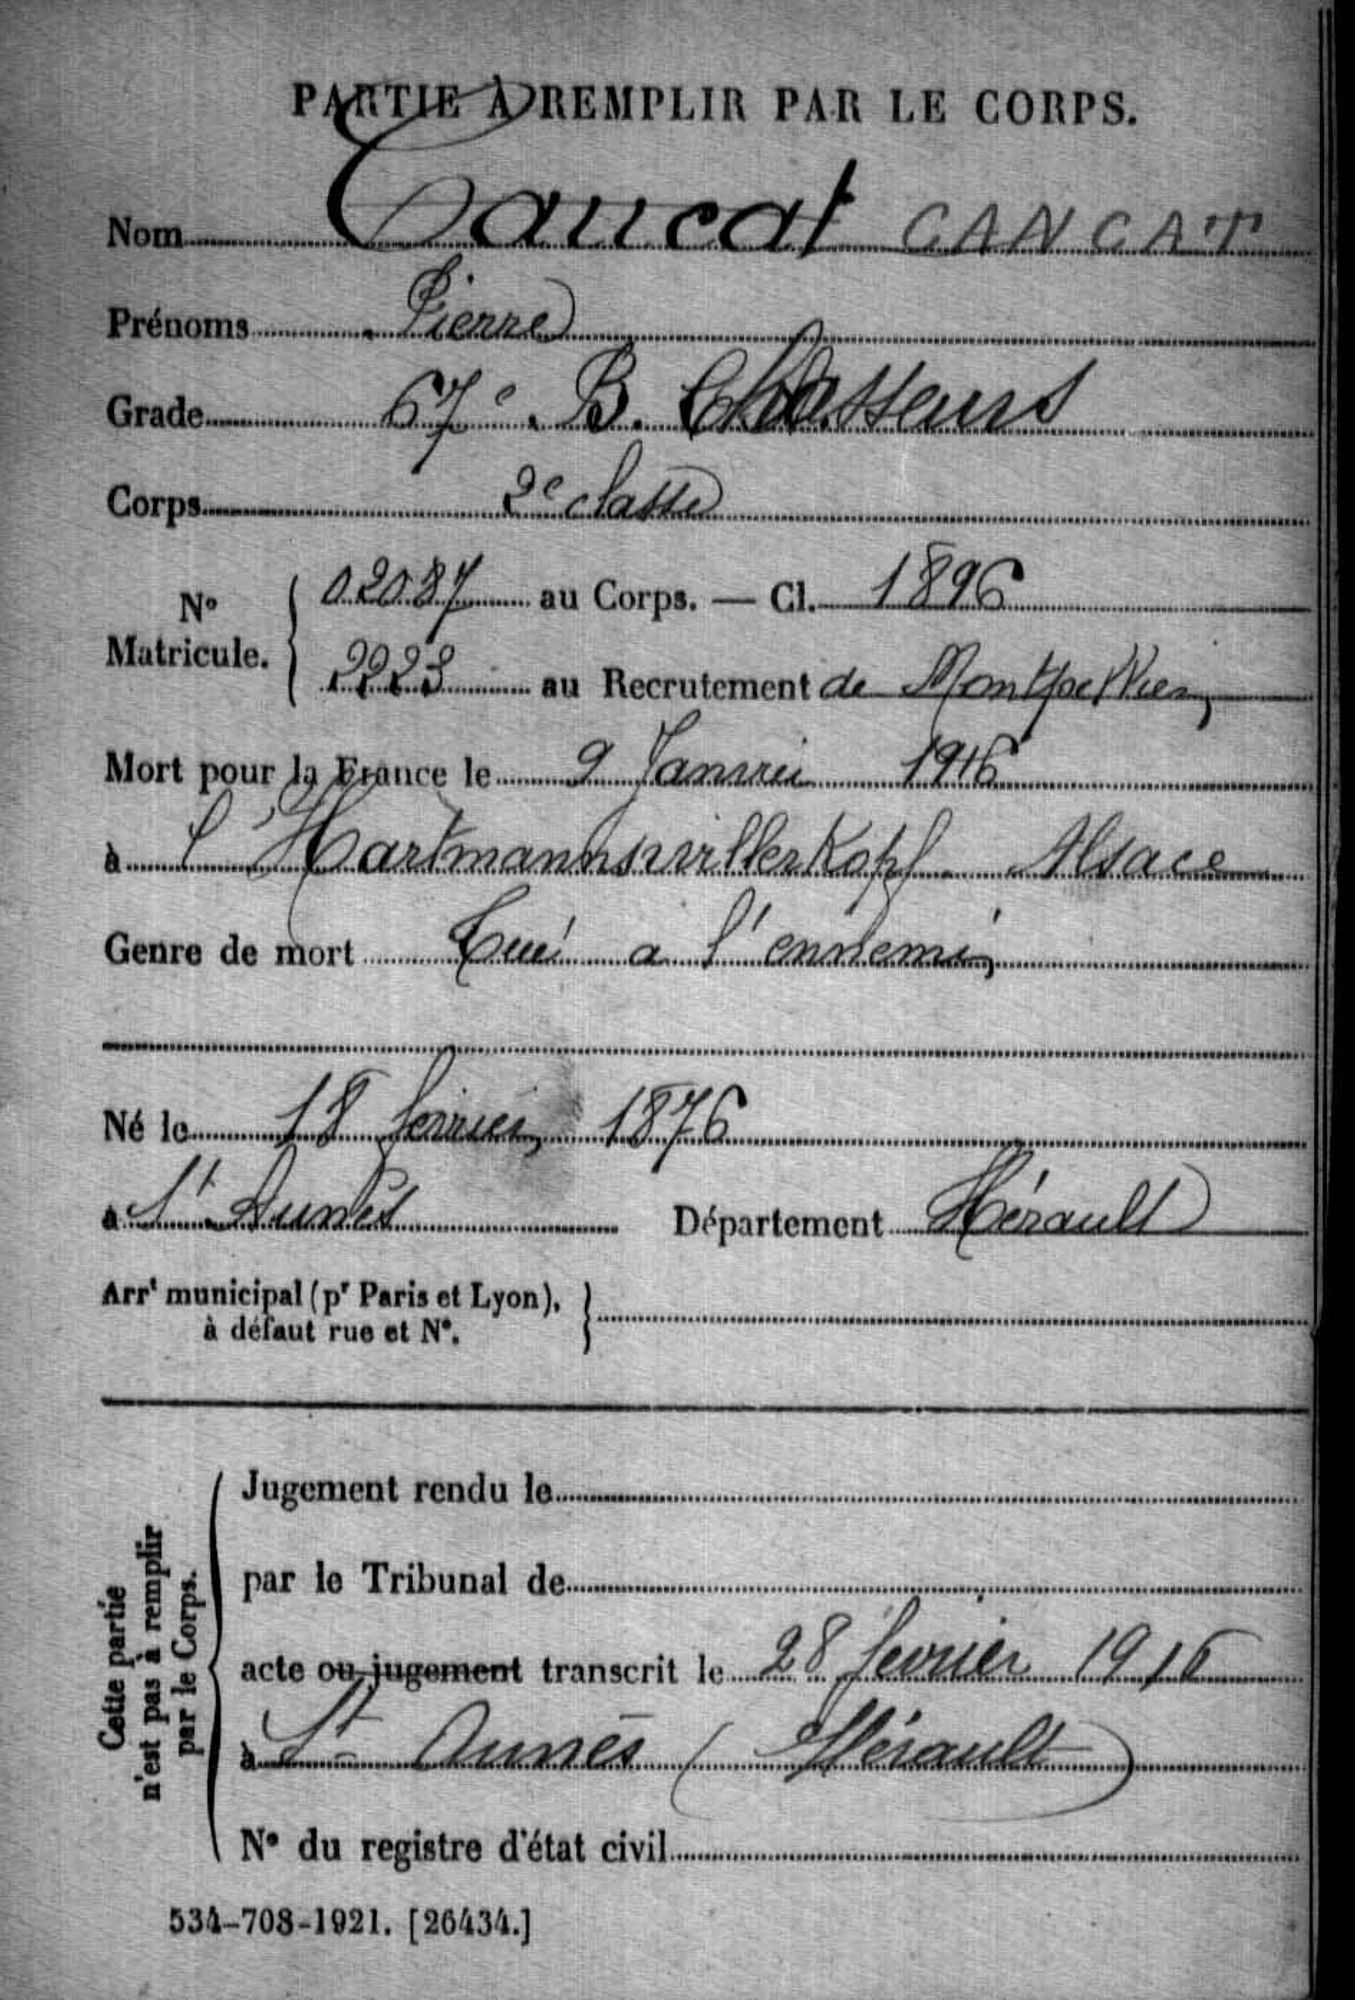 PARTIE À REMPLIR PAR LE CORPS.
Nom Cancat CANCAT
Prénoms Pierre
Grade 67e B. Chasseurs
Corps 2e classe
No Matricule. { 02087 au Corps. — Cl. 1896
2223 au Recrutement de Montpellier
Mort pour la France le 9 Janvier 1916
à l'Hartmannswillerkopf Alsace
Genre de mort Tué a l'ennemi
Né le 18 fevrier 1876
à St Aunès Département Hérault
Arrt municipal (pr Paris et Lyon), à défaut rue et No. }
Cette partie n'est pas à remplir par le Corps.
Jugement rendu le
par le Tribunal de
acte ou jugement transcrit le 28 fevrier 1916
à St Aunès (Hérault)
No du registre d'état civil
534-708-1921. [26434.]